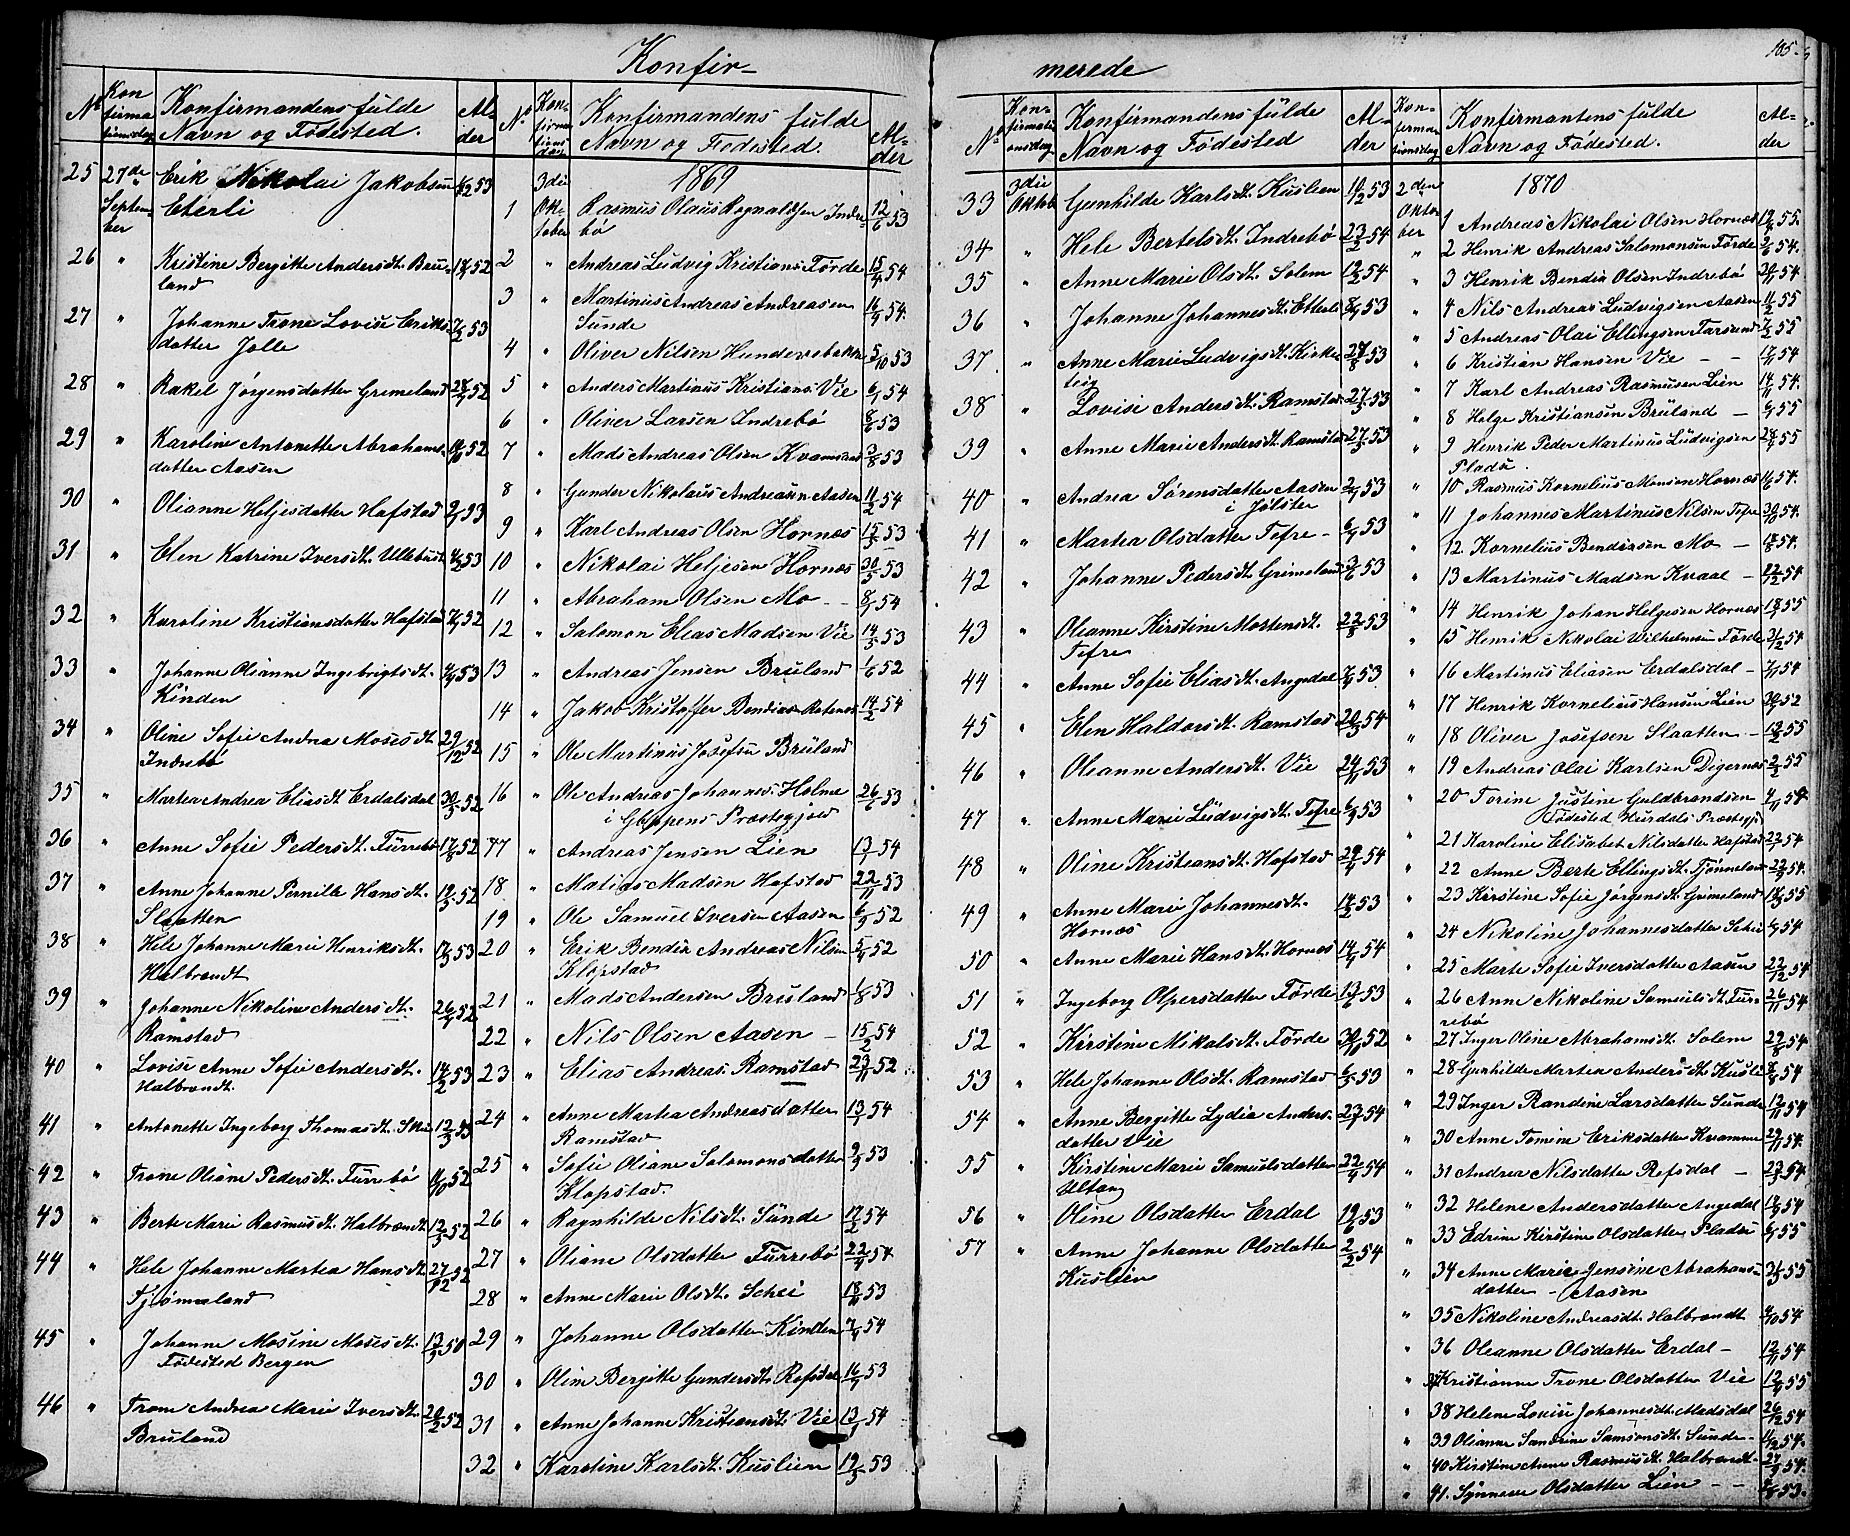 Konfir-
No Konfirmationsdag Konfirmandens fulde Navn og Fødested. Alder
25 27de September Erik Nikolai Jakobsen
Eterli
26 " Kristine Bergitte Andersdt. Bru-
land
27 " Johanne Trone Lovise Eriks-
datter Jolle
28 " Rakel Jørgensdatter Grimeland
29 " Karoline Antonette Abrahams-
datter Aasen
30 " Olianne Heljesdatter Hafstad
31 " Elen Katrine Iversdt. Ullebust
32 " Karoline Kristiansdatter Hafstad
33 " Johanne Olianne Ingebrigtsdt.
Kinden
34 " Oline Sofie Andrea Mosesdt. 29/12 52
Indrebø
35 " Martea Andrea Eliasdt. Erdalsdal 30/3 52
36 " Anne Sofie Pedersdt. Furrebø 17/8 52
37 " Anne Johanne Pernille Hansdt. 19/3 52
Slaatten
38 " Hele Johanne Marie Henriksdt.
Halbrandt
39 " Johanne Nikoline Andersdt.
Ramstad
40 " Lovise Anne Sofie Andersdt. 14/2 53
Halbrandt.
41 " Antonette Ingeborg Thomasdt. Skei
42 " Trone Oliane Pedersdt. Furrebø
43 " Berte Marie Rasmusdt. Halbrandt 12/3 52
44 " Hele Johanne Martea Hansdt.
Fjømeland
45 " Johanne Mosine Mosesdt.
Fødested Bergen
46 " Trone Andrea Marie Iversdt. 20/2 52
Bruland
No Konfirmationsdag Konfirmandens fulde Navn og Fødested. Alder
1869
1 3die Oktober Rasmus Olaus Ragnaldsen Indre- 12/6 53
bø
2 " Andreas Ludvig Kristians. Førde 15/4 54
3 " Martinus Andreas Andreasen
Sunde
4 " Oliver Nilsen Hundersbakke 5/10 53
5 " Anders Martinus Kristians. Vie 6/1 54
6 " Oliver Larsen Indrebø 8/6 53
7 " Mads Andreas Olsen Kvamsnes 3/8 53
8 " Gunder Nikolaus Andreasen Aasen 11/2 54
9 " Karl Andreas Olsen Hornæs 15/3 53
10 " Nikolai Heljesen Hornæs 30/5 53
11 " Abraham Olsen Mo - - 8/1 54
12 " Salomon Elias Madsen Vie 14/3 53
13 " Andreas Jensen Bruland 1/6 52
14 " Jakob Kristoffer Bendias. Rotenes 14/2 54
15 " Ole Martinus Josefsen Bruland
16 " Ole Andreas Johannes. Holme 26/6 53
i Gloppens Præstegjeld
17 " Andreas Jensen Lien 13/1 54
18 " Matias Madsen Hafstad 22/11 53
19 " Ole Samuel Iversen Aasen 6/9 52
20 " Erik Bendix Andreas Nilsen 5/9 52
Klopstad
21 " Mads Andersen Bruland 1/8 53
22 " Nils Olsen Aasen - 15/2 54
23 " Elias Andreas. Ramstad 23/11 52
24 " Anne Martea Andreasdatter 13/1 54
Ramstad
25 " Sofie Oliane Salomonsdatter 9/9 53
Klopstad.
26 " Ragnhilde Nilsdt. Sunde 17/2 54
27 " Oliane Olsdatter Furrebø 22/4 54
28 " Anne Marie Olsdt. Schei
29 " Johanne Olsdatter Kinden 7/4 54
30 " Oline Bergitte Gundersdt. Refsdal 16/9 53
31 " Anne Johanne Kristiansdt. Vie 13/1 54
32 " Karoline Karlsdt. Kuslien 19/3 53
merede
105.
No Konfirmationsdag Konfirmandens fulde Navn og Fødested Alder
33 3die Oktob Gunhilde Karlsdt. Kuslien
34 " Hele Bertelsdt. Indrebø 23/2 54
35 " Anne Marie Olsdt. Solem 12/2 54
36 " Johanne Johannesdt. Etterli
37 " Anne Marie Ludvigsdt. Kirke- 27/8 53
teig
38 " Lovise Andersdt. Ramstad 27/3 53
39 " Anne Marie Andersdt. Ramstad 27/3 53
40 " Andrea Sørensdatter Aasen
i Jølster
41 " Martea Olsdatter Tefre - 6/9 53
42 " Johanne Pedersdt. Grimeland 3/6 53
43 " Olianne Kirstine Mortensdt. 22/8 53
Tefre
44 " Anne Sofie Eliasdt. Angedal 7/9 53
45 " Elen Haldorsdt. Ramstad 20/3 54
46 " Olianne Andersdt. Vie 24/11 53
47 " Anne Marie Ludvigsdt. Tefre 6/9 53
48 " Oline Kristiansdt. Hafstad 29/4 54
49 " Anne Marie Johannesdt. 14/2 53
Hornæs
50 " Anne Marie Hansdt. Hornæs 14/4 54
51 " Ingeborg Olpersdatter Førde
52 " Kirstine Mikalsdt. Førde 30/11 52
53 " Hele Johanne Olsdt. Ramstad 6/5 53
54 " Anne Bergitte Lydia Anders-
datter Vie
55 " Kirstine Marie Samuelsdatter 22/4 54
Ultang
56 " Oline Olsdatter Erdal 19/6 53
57 " Anne Johanne Olsdatter 2/2 54
Kuslien
Konfirmationsdag Konfirmantens fulde Navn og Fødested. Alder
2den Oktober 1870
1 Andreas Nikolai Olsen Hornæs
" 2 Henrik Andreas Salomonsen Førde
" 3 Henrik Bendix Olsen Indrebø
" 4 Nils Andreas Ludvigsen Aasen 11/2 55
" 5 Andreas Olai Ellingsen Farsund 7/2 55
" 6 Kristian Hansen Vie - -
" 7 Karl Andreas Rasmusen Lien 14/11 54.
" 8 Helge Kristiansen Bruland -
" 9 Henrik Peder Martinus Ludvigsen
Pladsø.
" 10 Rasmus Kornelius Monsen Hornæs
" 11 Johannes Martinus Nilsen Tefre 20/10 54.
" 12 Kornelius Bendixsen Mo -
" 13 Martinus Madsen Kvaal - 22/12 54
" 14 Henrik Johan Helgesen Hornæs
" 15 Henrik Nikolai Wilhelmsen Førde 21/12 54
" 16 Martinus Eliasen Erdalsdal -
" 17 Henrik Kornelius Hansen Lien
" 18 Oliver Josefsen Slaatten -
" 19 Andreas Olai Karlsen Digernes 2/2 55
" 20 Torine Justine Guldbrandsen 4/11 54
Fødested Hurdals Præstegj.
" 21 Karoline Elisabet Nilsdatter Hafstad
" 22 Anne Berte Ellingsdt. Fjømeland
" 23 Kirstine Sofie Jørgensdt. Grimeland
" 24 Nikoline Johannesdatter Schei
" 25 Marte Sofie Iversdatter Aasen 22/12 54
" 26 Anne Nikoline Samuelsdt. Fur- 26/11 54
rebø
" 27 Inger Oline Abrahamsdt. Solem 22/8 54
" 28 Gunhilde Martea Andersdt. Kusli
" 29 Inger Randine Larsdatter Sunde 12/11 54
" 30 Anne Tomine Eriksdatter Kvamme 29/11 54.
" 31 Andrea Nilsdatter Refsdal -
" 32 Helene Andersdatter Angedal
" 33 Edrine Kirstine Olsdatter Pladsø
" 34 Anne Marie Jensine Abrahams-
datter - Aasen
" 35 Nikoline Andreasdt. Halbrandt 4/10 54
" 36 Olianne Olsdatter Erdal - 12/11 54
" 37 Kristianne Trone Olsdatter Vie
" 38 Helene Lovise Johannesdt. Madsdal 26/12 54
" 39 Olianne Sandrine Samsonsdt. Sunde - 11/12 54.
" 40 Kirstine Anne Rasmusdt. Halbrandt
" 41. Synneve Olsdatter Lien - -